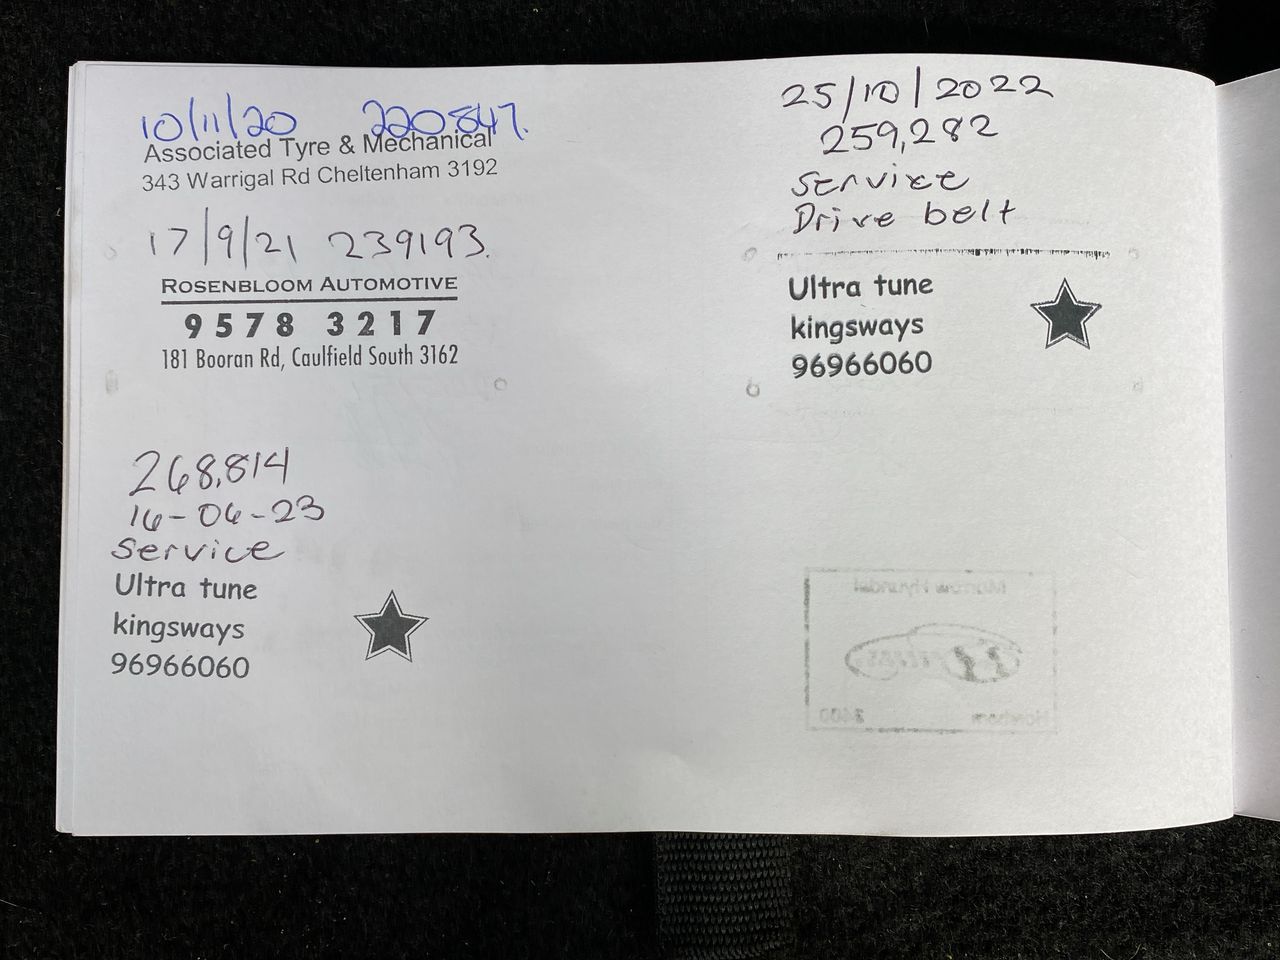 10/11/20 220847.
Associated Tyre & Mechanical
343 Warrigal Rd Cheltenham 3192
17/9/21 239193.
ROSENBLOOM AUTOMOTIVE
9578 3217
181 Booran Rd, Caulfield South 3162
268,814
16-06-23
service
Ultra tune
kingsways
96966060
25/10/2022
259,282
service
Drive belt
Ultra tune
kingsways
96966060
Morrow Hyundai
Horsham 3400